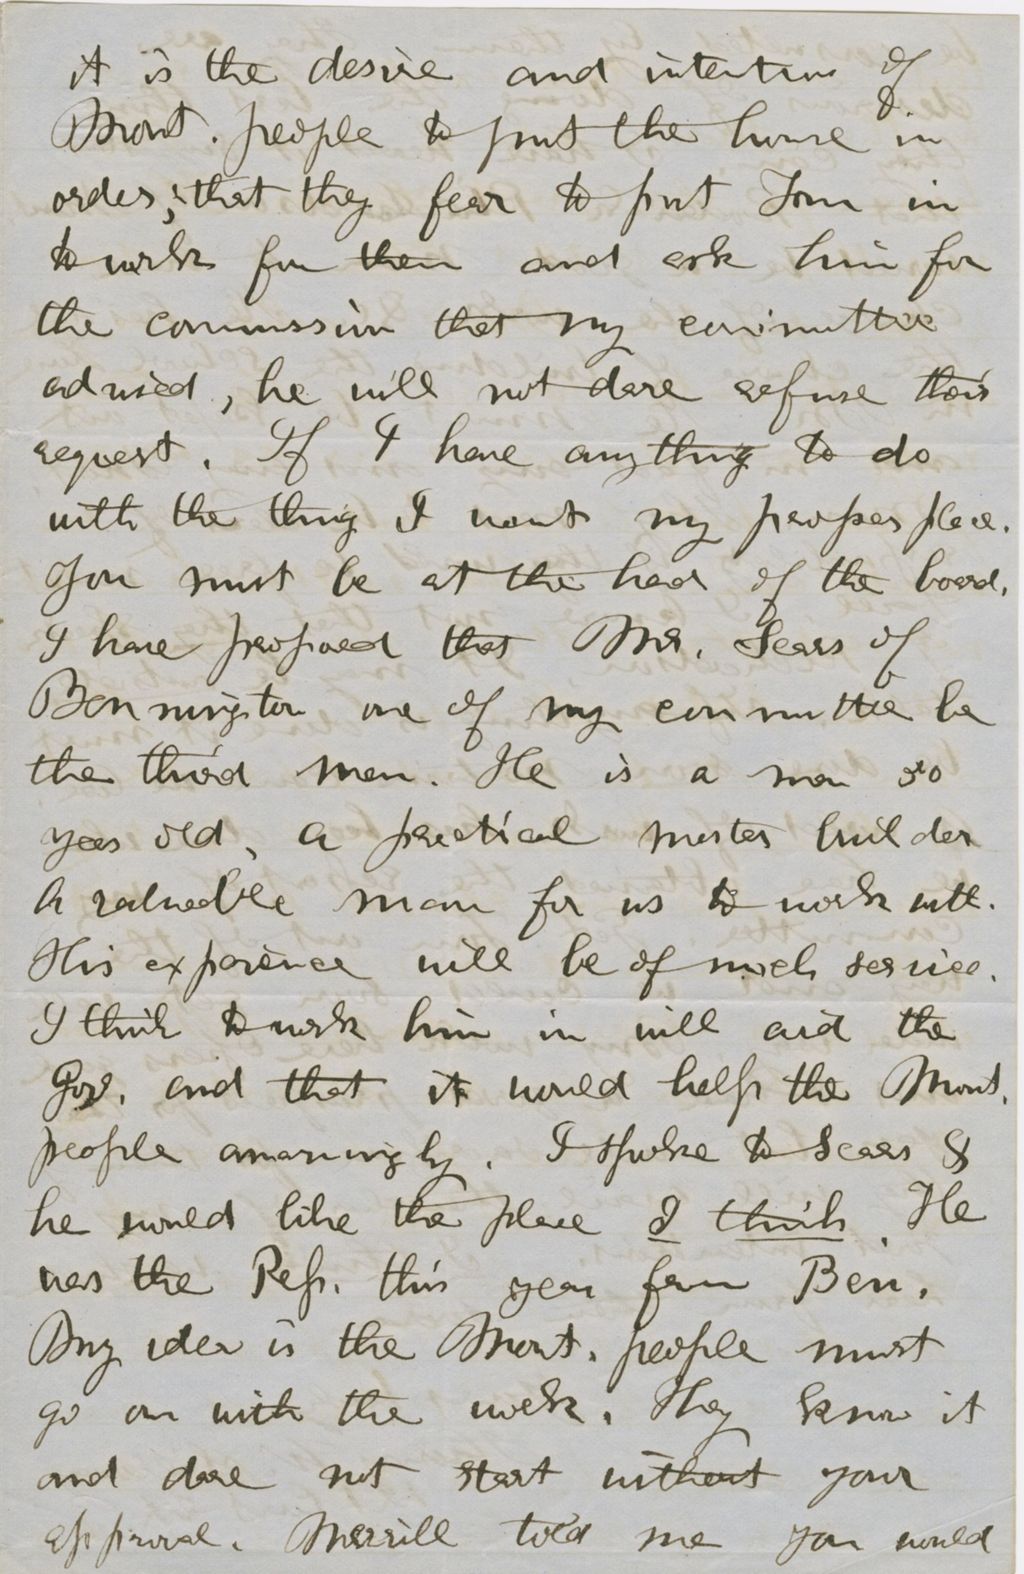 it is the desire and intention of
Mont. people to put the house in
order; that they fear to put you in
to work for them and ask him for
the commission that my committee
advised, he will not dare refuse their
request. If I have anything to do
with the thing I want my proper place.
You must be at the head of the board.
I have proposed that Mr. Sears of
Bennington one of my committee be
the third man. He is a man 50
years old, a practical master builder
A valuable man for us to work with.
His experience will be of much service.
I think to work him in will aid the
Gov. and that it would help the Mont.
people amazingly. I spoke to Sears &
he would like the place I think. He
was the Rep. this year from Ben.
My idea is the Mont. people must
go on with the work. They know it
and dare not start without your
approval. Merrill told me you would